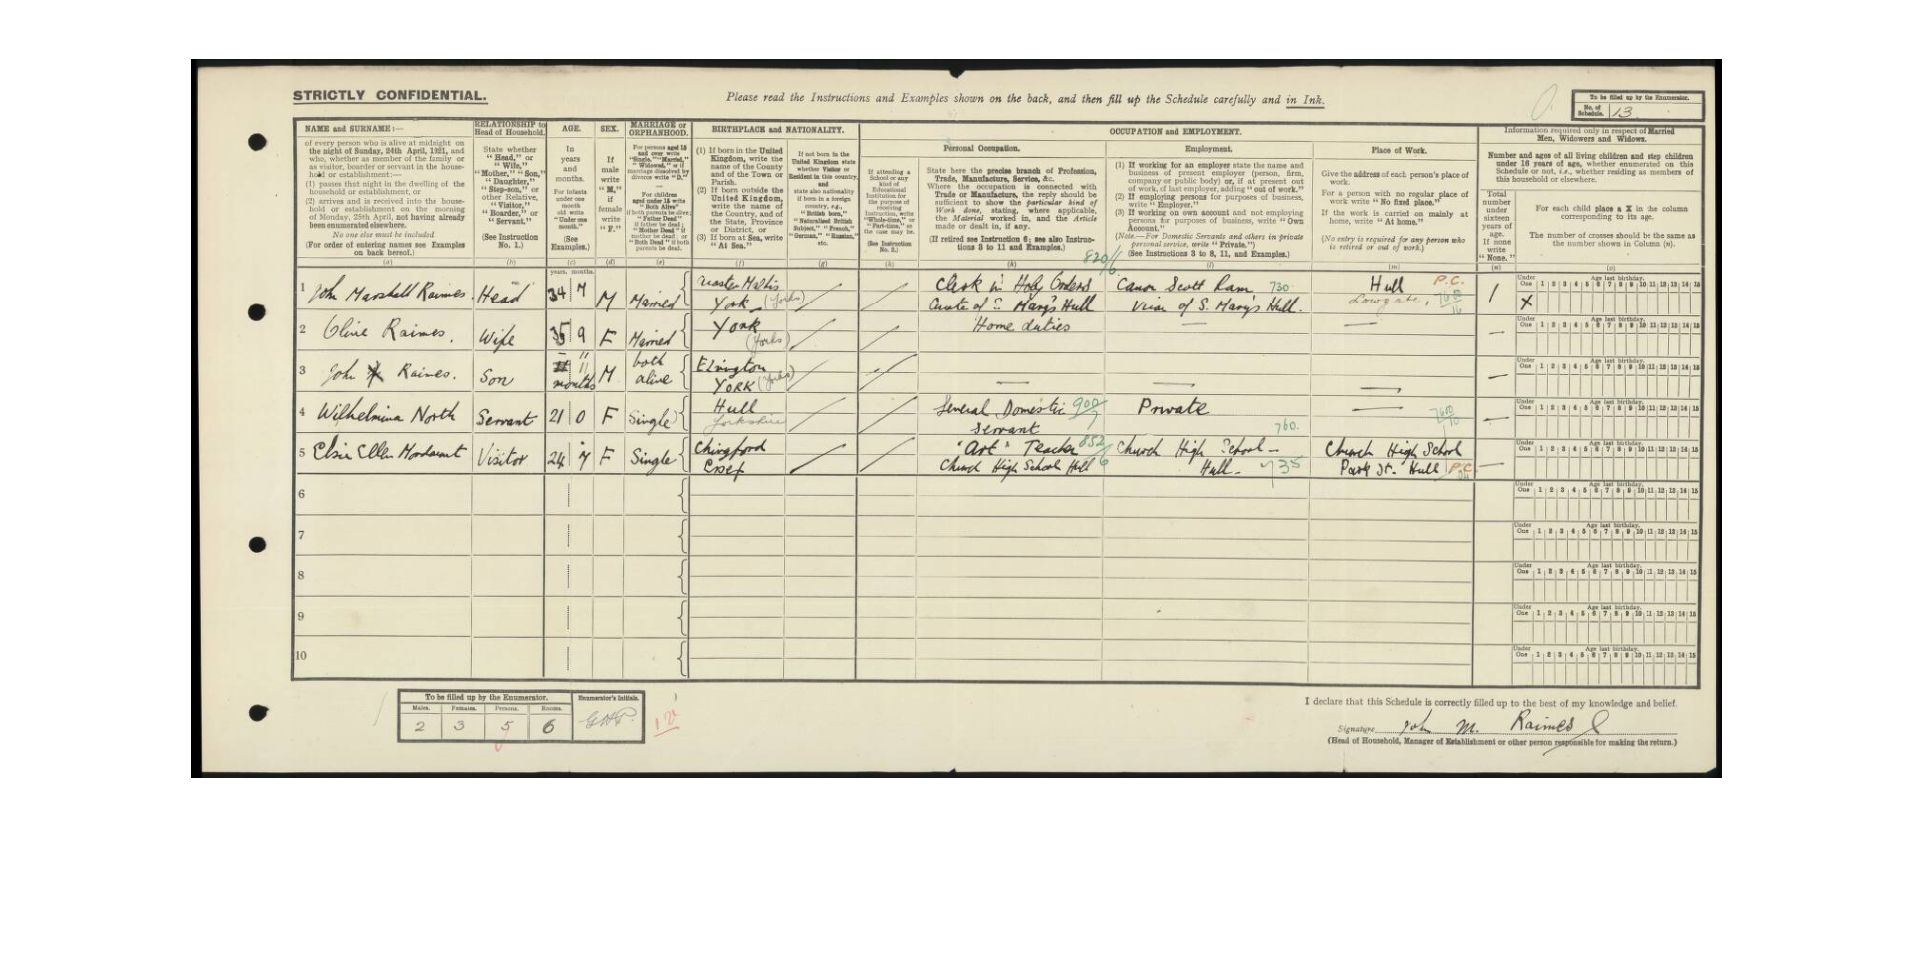 STRICTLY CONFIDENTIAL.
Please read the Instructions and Examples shown on the back, and then fill up the Schedule carefully and in Ink.
To be filled up by the Enumerator.
No. of Schedule. 13.
NAME and SURNAME:—
of every person who is alive at midnight on
the night of Sunday, 24th April, 1921, and
who, whether as member of the family or
as visitor, boarder or servant in the house-
hold or establishment:—
(1) passes that night in the dwelling of the
household or establishment, or
(2) arrives and is received into the house-
hold or establishment on the morning
of Monday, 25th April, not having already
been enumerated elsewhere.
No one else must be included
(For order of entering names see Examples
on back hereof.)
(a)
RELATIONSHIP to
Head of Household.
State whether
"Head," or
"Wife,"
"Mother," "Son,"
"Daughter,"
"Step-son," or
other Relative,
"Visitor,"
"Boarder," or
"Servant."
(See Instruction
No. 1.)
(b)
AGE.
In
years
and
months.
For infants
under one
month
old write
"Under one
month."
(See
Examples.)
(c)
years. months.
SEX.
If
male
write
"M,"
if
female
write
"F."
(d)
MARRIAGE or
ORPHANHOOD.
For persons aged 15
and over write
"Single," "Married,"
"Widowed," or if
marriage dissolved by
divorce write "D."
For children
aged under 15 write
"Both Alive"
if both parents be alive;
"Father Dead" if
father be dead;
"Mother Dead" if
mother be dead; or
"Both Dead" if both
parents be dead.
(e)
BIRTHPLACE and NATIONALITY.
(1) If born in the United
Kingdom, write the
name of the County
and of the Town or
Parish.
(2) If born outside the
United Kingdom,
write the name of
the Country, and of
the State, Province
or District, or
(3) If born at Sea, write
"At Sea."
(f)
If not born in the
United Kingdom state
whether Visitor or
Resident in this country,
and
state also nationality
if born in a foreign
country, e.g.,
"British born,"
"Naturalised British
Subject," "French,"
"German," "Russian,"
etc.
(g)
OCCUPATION and EMPLOYMENT.
If attending a
School or any
kind of
Educational
Institution for
the purpose of
receiving
Instruction, write
"Whole-time," or
"Part-time," as
the case may be.
(See Instruction
No. 2.)
(h)
Personal Occupation.
State here the precise branch of Profession,
Trade, Manufacture, Service, &c.
Where the occupation is connected with
Trade or Manufacture, the reply should be
sufficient to show the particular kind of
Work done, stating, where applicable,
the Material worked in, and the Article
made or dealt in, if any.
(If retired see Instruction 6; see also Instruc-
tions 3 to 11 and Examples.)
(k)
820/6
Employment.
(1) If working for an employer state the name and
business of present employer (person, firm,
company or public body) or, if at present out
of work, of last employer, adding "out of work."
(2) If employing persons for purposes of business,
write "Employer."
(3) If working on own account and not employing
persons for purposes of business, write "Own
Account."
(Note.—For Domestic Servants and others in private
personal service, write "Private.")
(See Instructions 3 to 8, 11, and Examples.)
(l)
Place of Work.
Give the address of each person's place of
work.
For a person with no regular place of
work write "No fixed place."
If the work is carried on mainly at
home, write "At home."
(No entry is required for any person who
is retired or out of work.)
(m)
Information required only in respect of Married
Men, Widowers and Widows.
Number and ages of all living children and step children
under 16 years of age, whether enumerated on this
Schedule or not, i.e., whether residing as members of
this household or elsewhere.
Total
number
under
sixteen
years of
age.
If none
write
"None."
(n)
For each child place a X in the column
corresponding to its age.
The number of crosses should be the same as
the number shown in Column (n).
(o)
1 John Marshall Raimes. Head 34 7 M Married York (Yorks) Clerk in Holy Orders Curate of S. Mary's Hull Canon Scott Ram 730 Vicar of S. Mary's Hull. Hull P.C. Lowgate, 1 X
2 Olive Raimes. Wife 35 9 F Married York (Yorks) Home duties — — —
3 John Raimes. Son 11 months M both alive Elvington YORK (Yorks) — — — —
4 Wilhelmina North Servant 21 0 F Single Hull Yorkshire General Domestic Servant 900/7 Private 760. — —
5 Elsie Ellen Mordaunt Visitor 24 7 F Single Chingford Essex "Art" Teacher 852/6 Church High School Hull Church High School – Hull – 735 Church High School Park St. Hull P.C. —
6
7
8
9
10
Under One Age last birthday. 1 2 3 4 5 6 7 8 9 10 11 12 13 14 15
To be filled up by the Enumerator.
Males. Females. Persons. Rooms.
2 3 5 6
Enumerator's Initials.
I declare that this Schedule is correctly filled up to the best of my knowledge and belief.
Signature John M. Raimes
(Head of Household, Manager of Establishment or other person responsible for making the return.)